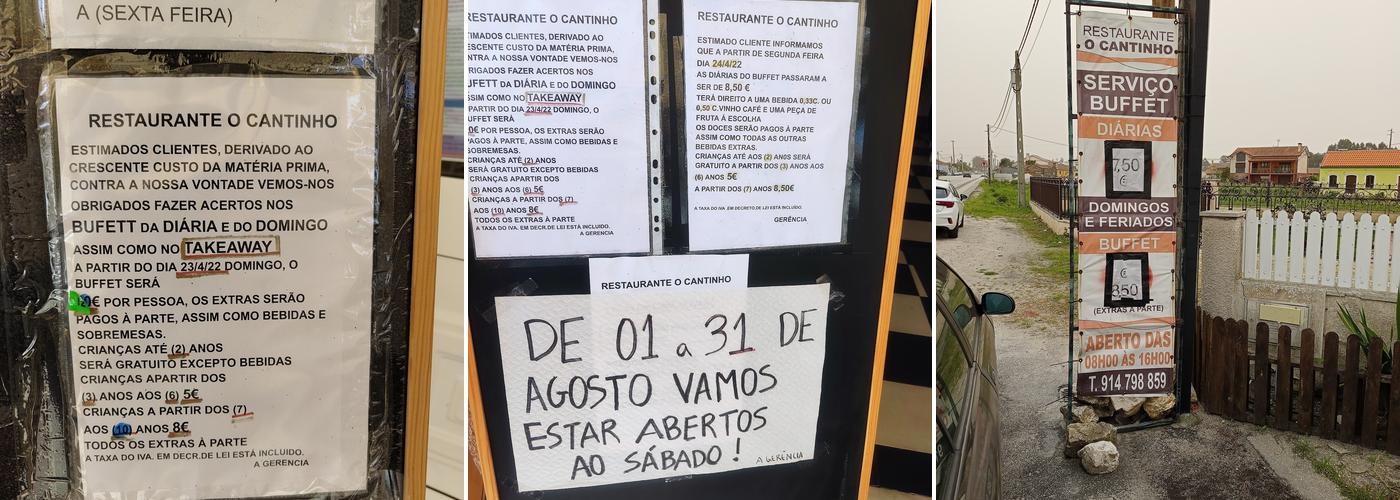 A (SEXTA FEIRA)
RESTAURANTE O CANTINHO
ESTIMADOS CLIENTES, DERIVADO AO
CRESCENTE CUSTO DA MATÉRIA PRIMA,
CONTRA A NOSSA VONTADE VEMOS-NOS
OBRIGADOS FAZER ACERTOS NOS
BUFETT DA DIÁRIA E DO DOMINGO
ASSIM COMO NO TAKEAWAY
A PARTIR DO DIA 23/4/22 DOMINGO, O
BUFFET SERÁ
€ POR PESSOA, OS EXTRAS SERÃO
PAGOS À PARTE, ASSIM COMO BEBIDAS E
SOBREMESAS.
CRIANÇAS ATÉ (2) ANOS
SERÁ GRATUITO EXCEPTO BEBIDAS
CRIANÇAS APARTIR DOS
(3) ANOS AOS (6) 5€
CRIANÇAS A PARTIR DOS (7)
AOS (10) ANOS 8€
TODOS OS EXTRAS À PARTE
A TAXA DO IVA. EM DECR.DE LEI ESTÁ INCLUIDO.
A GERENCIA
RESTAURANTE O CANTINHO
TIMADOS CLIENTES, DERIVADO AO
ESCENTE CUSTO DA MATÉRIA PRIMA,
NTRA A NOSSA VONTADE VEMOS-NOS
BRIGADOS FAZER ACERTOS NOS
UFETT DA DIÁRIA E DO DOMINGO
SIM COMO NO TAKEAWAY
PARTIR DO DIA 23/4/22 DOMINGO, O
UFFET SERÁ
0€ POR PESSOA, OS EXTRAS SERÃO
AGOS À PARTE, ASSIM COMO BEBIDAS E
SOBREMESAS.
CRIANÇAS ATÉ (2) ANOS
SERÁ GRATUITO EXCEPTO BEBIDAS
CRIANÇAS APARTIR DOS
(3) ANOS AOS (6) 5€
CRIANÇAS A PARTIR DOS (7)
AOS (10) ANOS 8€
TODOS OS EXTRAS À PARTE
A TAXA DO IVA. EM DECR.DE LEI ESTÁ INCLUIDO.
A GERENCIA
RESTAURANTE O CANTINHO
ESTIMADO CLIENTE INFORMAMOS
QUE A PARTIR DE SEGUNDA FEIRA
DIA 24/4/22
AS DIÁRIAS DO BUFFET PASSARAM A
SER DE 8,50 €
TERÁ DIREITO A UMA BEBIDA 0,33C. OU
0,50 C.VINHO CAFÉ E UMA PEÇA DE
FRUTA À ESCOLHA
OS DOCES SERÃO PAGOS À PARTE
ASSIM COMO TODAS AS OUTRAS
BEBIDAS EXTRAS.
CRIANÇAS ATÉ AOS (2) ANOS SERÁ
GRATUITO A PARTIR DOS (3) ANOS AOS
(6) ANOS 5€
A PARTIR DOS (7) ANOS 8,50€
A TAXA DO IVA .EM DECRETO.DE LEI ESTÁ INCLUIDO.
GERÊNCIA
RESTAURANTE O CANTINHO
DE 01 a 31 DE
AGOSTO VAMOS
ESTAR ABERTOS
AO SÁBADO !
A GERÊNCIA
RESTAURANTE
O CANTINHO
SERVIÇO
BUFFET
DIÁRIAS
7,50
€
DOMINGOS
E FERIADOS
BUFFET
€
850
(EXTRAS À PARTE)
ABERTO DAS
08H00 ÀS 16H00
T. 914 798 859